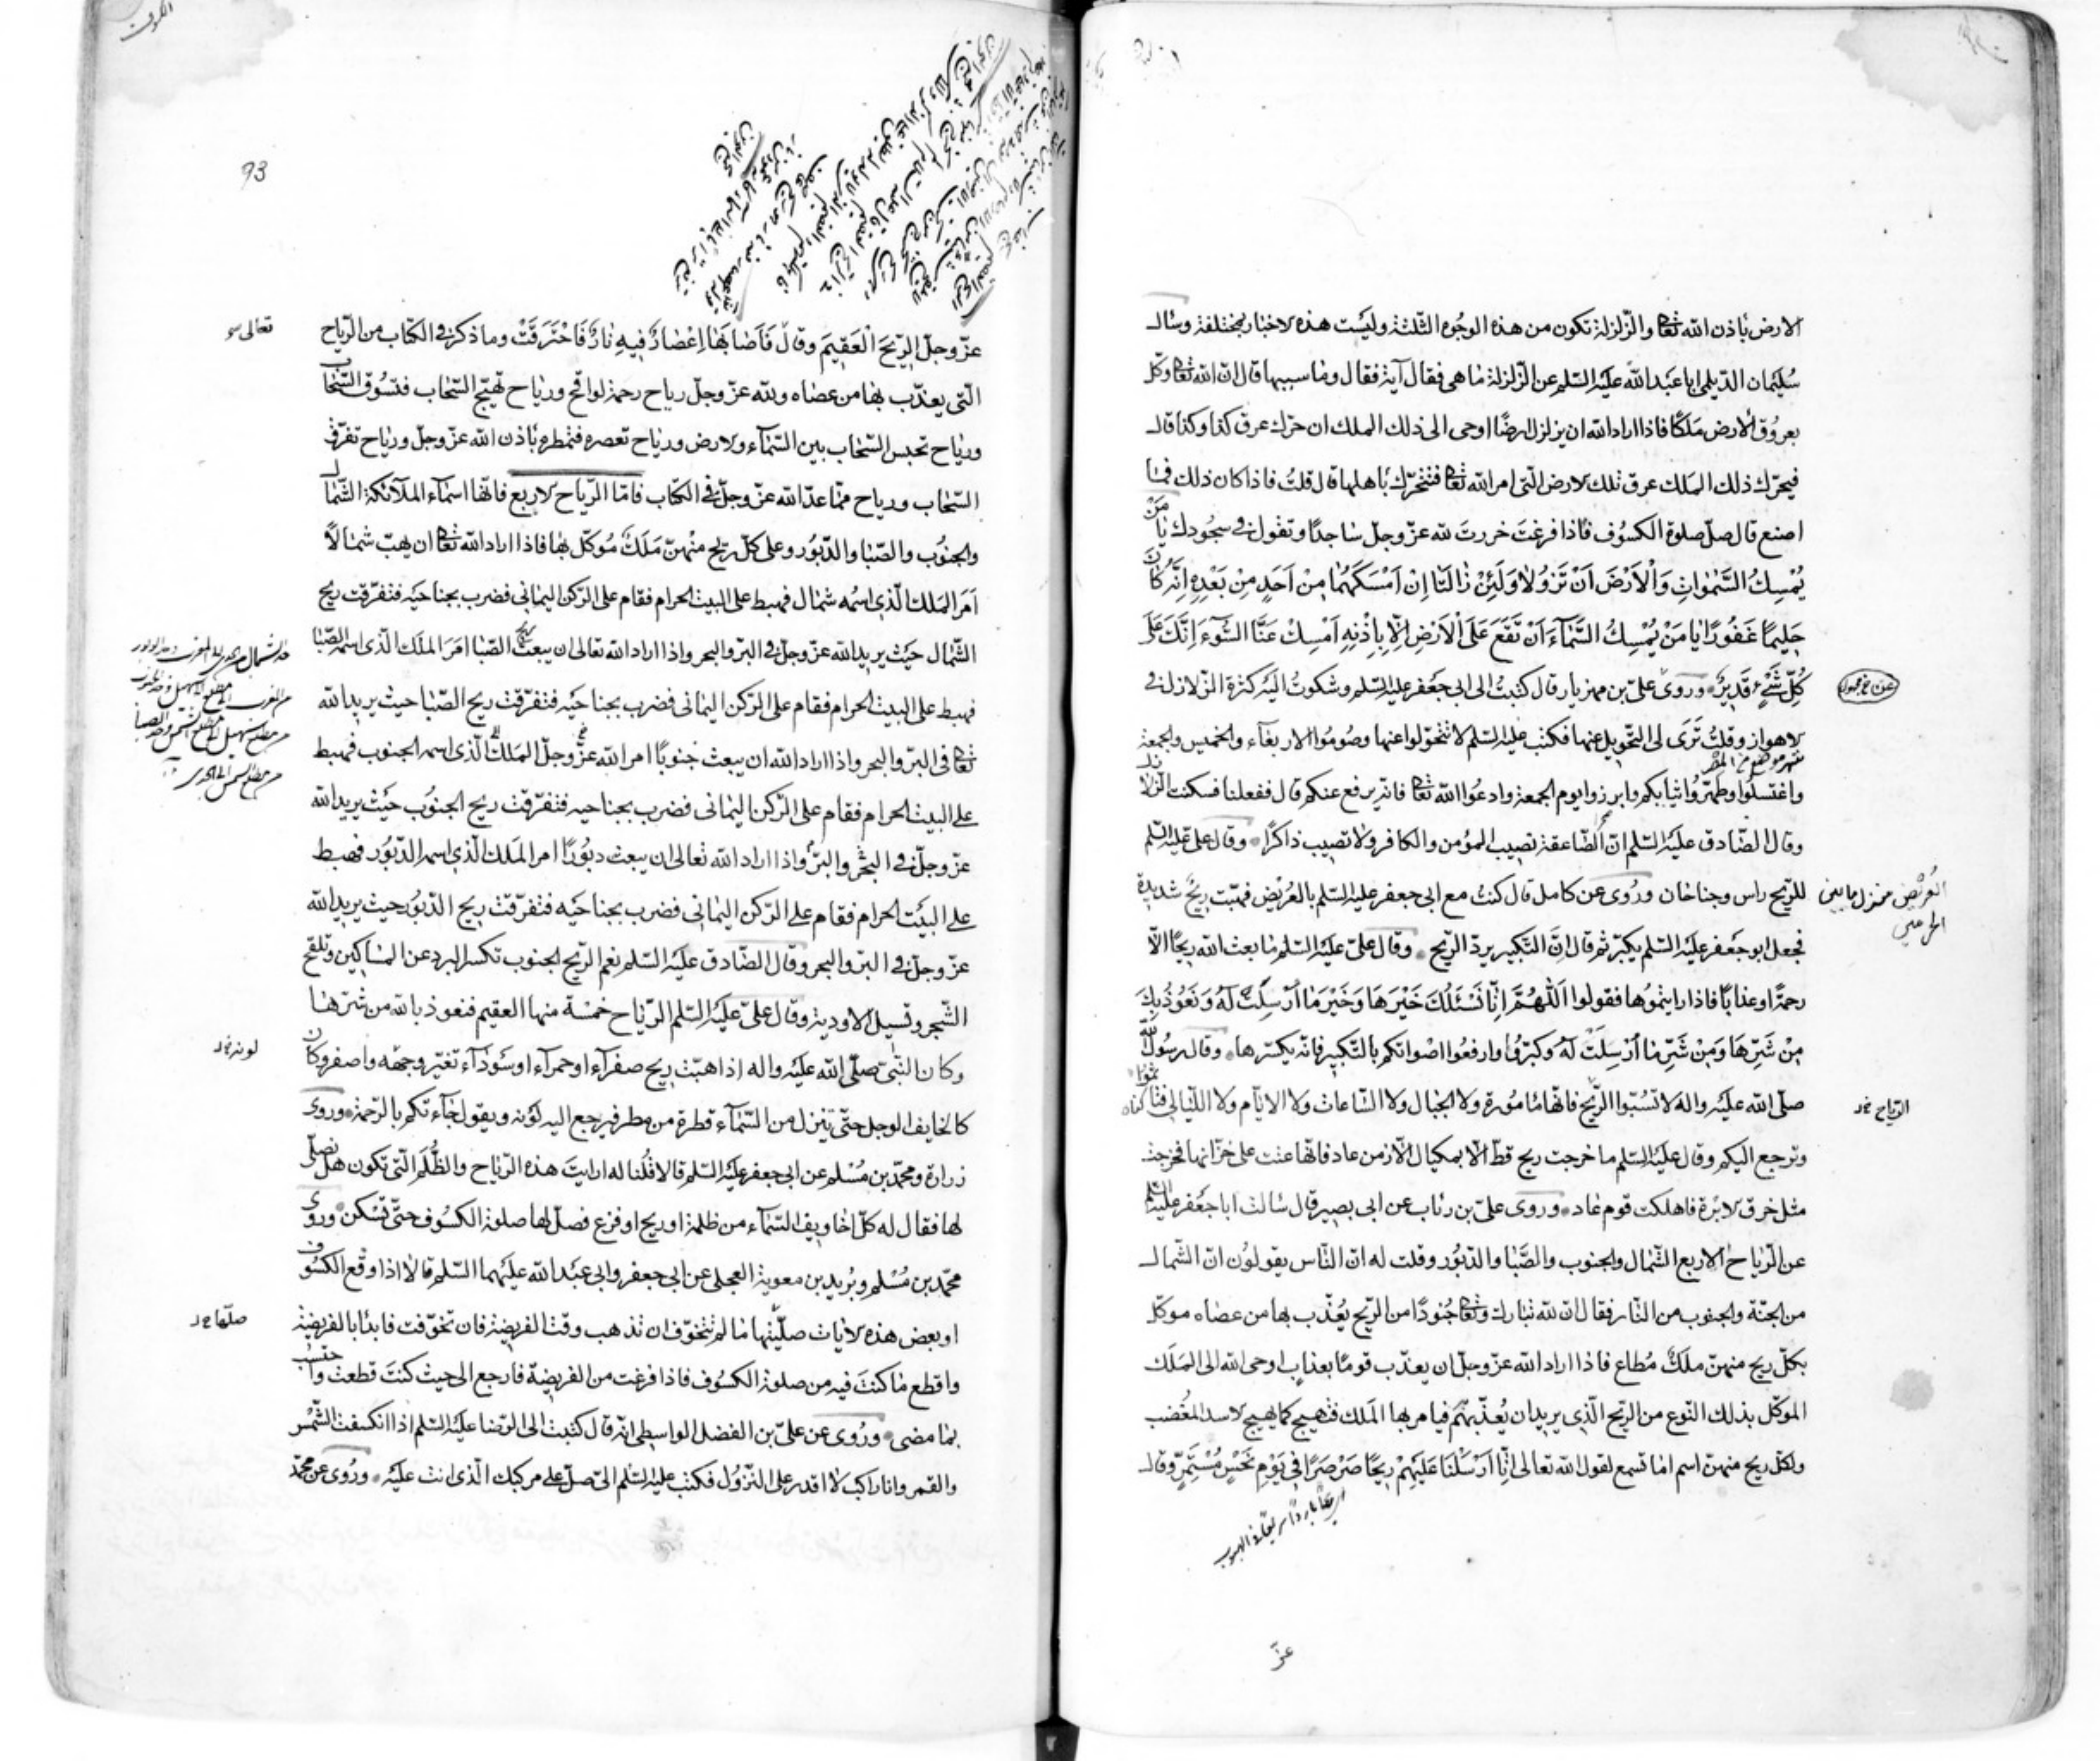 الارض باذن الله تعالى والزلزلة تكون من هذه الوجوه الثلثة وليست هذه الاخبار بمختلفة وسال
سليمان الديلمي ابا عبد الله عليه السلم عن الزلزلة ما هى فقال آية فقال وما سببها قال ان الله تعالى وكل
بعروق الارض ملكا فاذا اراد الله ان يزلزل ارضا اوحى الى ذلك الملك ان حرك عرق كذا وكذا قال
فيحرك ذلك الملك عرق تلك الارض التى امر الله تعالى فتتحرك باهلها قال قلت فاذا كان ذلك فما
اصنع قال صل صلوة الكسوف فاذا فرغت خررت لله عز وجل ساجدا وتقول فى سجودك يا من
يُمْسِكُ السَّمٰوٰاتِ وَالْاَرْضَ اَنْ تَزُولٰا وَلَئِنْ زٰالَتٰا اِنْ اَمْسَكَهُمٰا مِنْ اَحَدٍ مِنْ بَعْدِهِ اِنَّهُ كٰانَ
حَلِيمًا غَفُورًا يٰا مَنْ يُمْسِكُ السَّمٰآءَ اَنْ تَقَعَ عَلَى الْاَرْضِ اِلّٰا بِاِذْنِهِ اَمْسِكْ عَنَّا السُّوٓءَ اِنَّكَ عَلٰى
كُلِّ شَىْءٍ قَدِيرٌ وروى على بن مهزيار قال كتبت الى ابى جعفر عليه السلم وشكوت اليه كثرة الزلازل فى
الاهواز وقلت ترى لى التحويل عنها فكتب عليه السلم لا تتحولوا عنها وصوموا الاربعاء والخميس والجمعة
واغتسلوا وطهروا ثيابكم وابرزوا يوم الجمعة وادعوا الله تعالى فانه يرفع عنكم قال ففعلنا فسكنت الزلازل
وقال الصادق عليه السلم ان الصاعقة تصيب المؤمن والكافر ولا تصيب ذاكرا وقال على عليه السلم
للريح راس وجناحان وروى عن كامل قال كنت مع ابى جعفر عليه السلم بالعريض فهبت ريح شديدة
العريض منزل ما بين
الحرمين
فجعل ابو جعفر عليه السلم يكبر ثم قال ان التكبير يرد الريح وقال على عليه السلم ما بعث الله ريحا الا
رحمة او عذابا فاذا رايتموها فقولوا اَللّٰهُمَّ اِنّٰا نَسْئَلُكَ خَيْرَهَا وَخَيْرَ مٰا اُرْسِلَتْ لَهُ وَنَعُوذُ بِكَ
مِنْ شَرِّهَا وَمِنْ شَرِّ مٰا اُرْسِلَتْ لَهُ وكبروا وارفعوا اصواتكم بالتكبير فانه يكسرها وقال رسول الله
صلى الله عليه واله لا تسبوا الريح فانها مامورة ولا الجبال ولا الساعات ولا الايام ولا الليالى فتاثموا
الرياح
وترجع اليكم وقال عليه السلم ما خرجت ريح قط الا بمكيال الا زمن عاد فانها عتت على خزانها فخرجت
مثل خرق الابرة فاهلكت قوم عاد وروى على بن رئاب عن ابى بصير قال سالت ابا جعفر عليه السلم
عن الرياح الاربع الشمال والجنوب والصبا والدبور وقلت له ان الناس يقولون ان الشمال
من الجنة والجنوب من النار فقال ان لله تبارك وتعالى جنودا من الريح يعذب بها من عصاه موكل
بكل ريح منهن ملك مطاع فاذا اراد الله عز وجل ان يعذب قوما بعذاب اوحى الله الى الملك
الموكل بذلك النوع من الريح الذى يريد ان يعذبهم فيامر بها الملك فتهيج كما يهيج الاسد المغضب
ولكل ريح منهن اسم اما تسمع لقول الله تعالى اِنّٰا اَرْسَلْنَا عَلَيْهِمْ رِيحًا صَرْصَرًا فِى يَوْمِ نَحْسٍ مُسْتَمِرٍّ وقال
عز
93
عز وجل الرِّيحَ الْعَقِيمَ وقال فَاَصٰابَهٰا اِعْصٰارٌ فِيهِ نٰارٌ فَاحْتَرَقَتْ وما ذكر فى الكتاب من الرياح
تعالى
التى يعذب بها من عصاه ولله عز وجل رياح رحمة لواقح ورياح تهيج السحاب فتسوق السحاب
ورياح تحبس السحاب بين السماء والارض ورياح تعصره فتمطره باذن الله عز وجل ورياح تفرق
السحاب ورياح مما عد الله عز وجل فى الكتاب فاما الرياح الاربع فانها اسماء الملائكة الشمال
والجنوب والصبا والدبور وعلى كل ريح منهن ملك موكل بها فاذا اراد الله تعالى ان يهب شمالا
امر الملك الذى اسمه شمال فهبط على البيت الحرام فقام على الركن اليمانى فضرب بجناحيه فتفرقت ريح
الشمال حيث يريد الله عز وجل فى البر والبحر واذا اراد الله تعالى ان يبعث الصبا امر الملك الذى اسمه الصبا
فهبط على البيت الحرام فقام على الركن اليمانى فضرب بجناحيه فتفرقت ريح الصبا حيث يريد الله
تعالى فى البر والبحر واذا اراد الله ان يبعث جنوبا امر الله عز وجل الملك الذى اسمه الجنوب فهبط
على البيت الحرام فقام على الركن اليمانى فضرب بجناحيه فتفرقت ريح الجنوب حيث يريد الله
عز وجل فى البحر والبر واذا اراد الله تعالى ان يبعث دبورا امر الملك الذى اسمه الدبور فهبط
على البيت الحرام فقام على الركن اليمانى فضرب بجناحيه فتفرقت ريح الدبور حيث يريد الله
عز وجل فى البر والبحر وقال الصادق عليه السلم نعم الريح الجنوب تكسر البرد عن المساكين وتلقح
الشجر وتسيل الاودية وقال على عليه السلم الرياح خمسة منها العقيم فنعوذ بالله من شرها
وكان النبى صلى الله عليه واله اذا هبت ريح صفراء او حمراء او سوداء تغير وجهه واصفر وكان
لونه
كالخايف الوجل حتى تنزل من السماء قطرة من مطر فيرجع اليه لونه ويقول جاءتكم بالرحمة وروى
زرارة ومحمد بن مسلم عن ابى جعفر عليه السلم قالا قلنا له ارايت هذه الرياح والظلم التى تكون هل نصلى
لها فقال له كل اخاويف السماء من ظلمة او ريح او فزع فصل لها صلوة الكسوف حتى تسكن وروى
محمد بن مسلم وبريد بن معوية العجلى عن ابى جعفر وابى عبد الله عليهما السلم قالا اذا وقع الكسوف
او بعض هذه الايات صليتها ما لم تتخوف ان تذهب وقت الفريضة فان تخوفت فابدا بالفريضة
صلها
واقطع ما كنت فيه من صلوة الكسوف فاذا فرغت من الفريضة فارجع الى حيث كنت قطعت واحتسب
بما مضى وروى عن على بن الفضل الواسطى انه قال كتبت الى الرضا عليه السلم اذا انكسفت الشمس
والقمر وانا راكب لا اقدر على النزول فكتب عليه السلم الى صل على مركبك الذى انت عليه وروى عن محمد